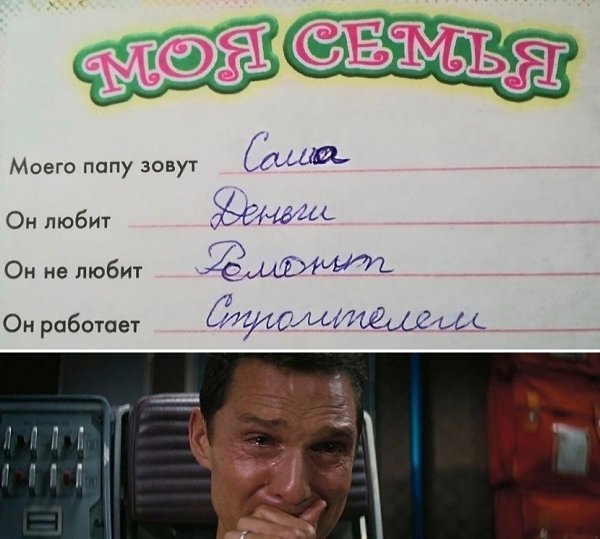 МОЯ СЕМЬЯ
Моего папу зовут Саша
Он любит Деньги
Он не любит Ремонт
Он работает Строителем